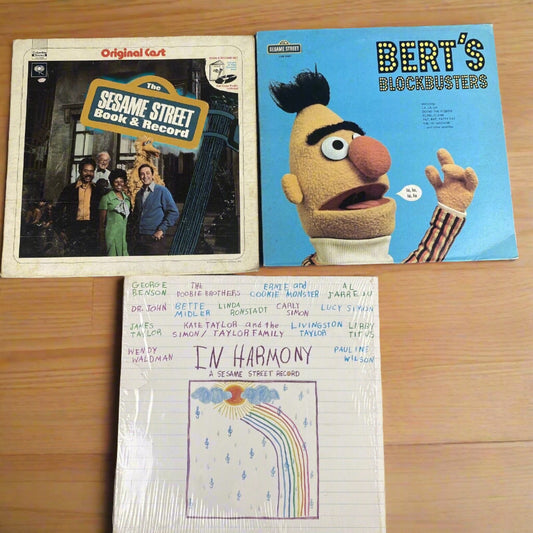 Original Cast
The
SESAME STREET
Book & Record
SESAME STREET
BERT'S
BLOCKBUSTERS
la, la,
la, la
GEORGE BENSON
THE DOOBIE BROTHERS
ERNIE and COOKIE MONSTER
AL JARREAU
DR. JOHN
BETTE MIDLER
LINDA RONSTADT
CARLY SIMON
LUCY SIMON
JAMES TAYLOR
KATE TAYLOR and the SIMON/TAYLOR FAMILY
LIVINGSTON TAYLOR
LIBBY TITUS
WENDY WALDMAN
PAULINE WILSON
IN HARMONY
A SESAME STREET RECORD